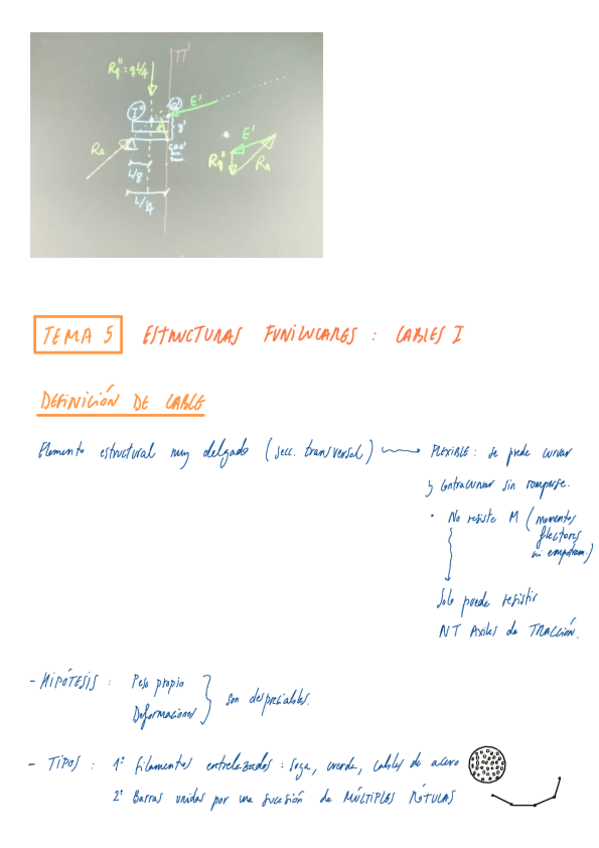 π'
Rq'' = qL/4
T''
Q
E'
y'
RA
L/8
L/4
E'
Rq''
RA
TEMA 5 ESTRUCTURAS FUNICULARES : CABLES I
DEFINICIÓN DE CABLE
Elemento estructural muy delgado (secc. transversal) FLEXIBLE: se puede curvar
y contracurvar sin romperse.
• No resiste M (momentos
flectores
ni empotram.)
Solo puede resistir
NT Axiles de TRACCIÓN.
- HIPÓTESIS : Peso propio
Deformaciones son despreciables.
- TIPOS : 1º Filamentos entrelazados : soga, cuerda, cables de acero
2º Barras unidas por una sucesión de MÚLTIPLES RÓTULAS